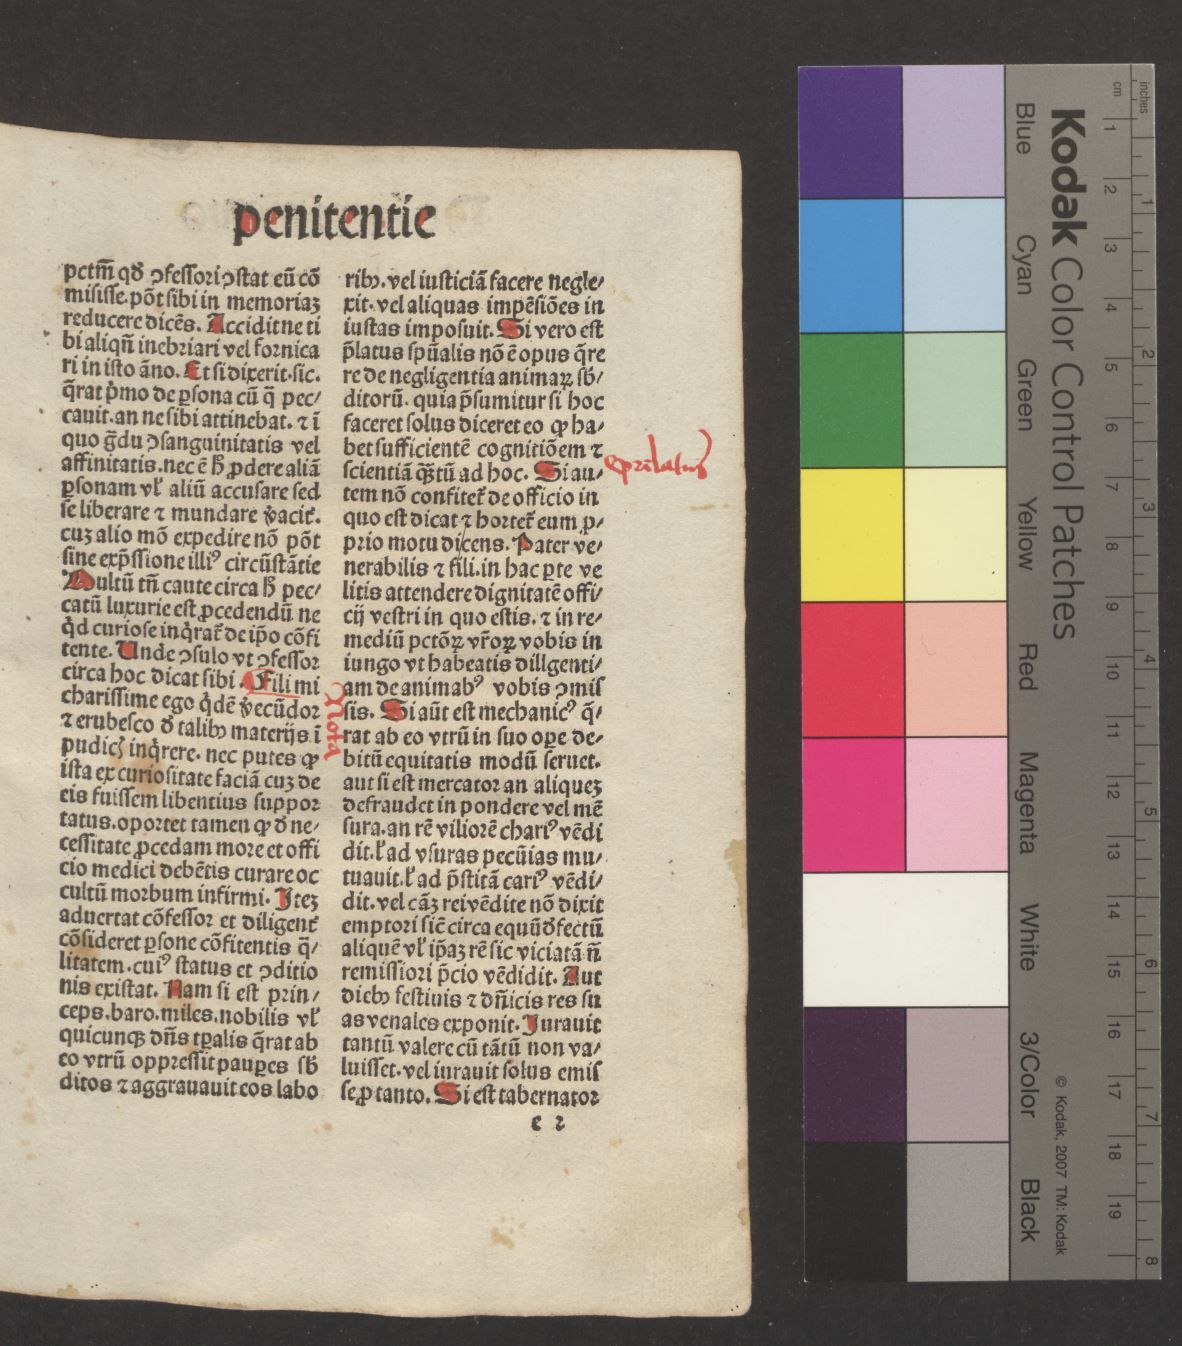 penitentie
pctm̄ qđ ɔfessori ɔstat eū cō
misisse. pōt sibi in memoriaꝫ
reducere dicēs. Acciditne ti
bi aliqn̄ inebriari vel fornica
ri in isto āno. Et si dixerit. sic.
q̄rat p̄mo de ꝑsona cū q̄ pec/
cauit. an ne sibi attinebat. ⁊ ī
quo ḡdu ɔsanguinitatis vel
affinitatis. nec ē ħ ꝓdere aliā
ꝑsonam vl̓ aliū accusare sed
se liberare ⁊ mundare
cuꝫ alio mō expedire nō pōt
sine exp̄ssione illiꝰ circūstātie
Multū tn̄ caute circa ħ pec/
catū luxurie est ꝓcedendū ne
q̇d curiose inq̇rat̄ de ip̄o cōfi
tente. Unde ɔsulo vt ɔfessor
circa hoc dicat sibi. Fili mi
charissime ego q̇dē v̓ecūdor
⁊ erubesco đ talibꝫ materijs ī
pudicꝭ inq̇rere. nec putes ꝙ
ista ex curiositate faciā cuꝫ de
eis fuissem libentius suppor
tatus. oportet tamen ꝙ đ ne/
cessitate ꝓcedam more et offi
cio medici debētis curare oc
cultū morbum infirmi. Iteꝫ
aduertat cōfessor et diligent̓
cōsideret ꝑsone cōfitentis q̄/
litatem. cuiꝰ status et ɔditio
nis existat. Nam si est prin/
ceps. baro. miles. nobilis vl̓
quicunqꝫ dn̄s tꝑalis q̄rat ab
eo vtrū oppressit pauꝑes sƀ
ditos ⁊ aggrauauit eos labo
Nota
ribꝫ. vel iusticiā facere negle/
xit. vel aliquas impēsiōes in
iustas imposuit. Si vero est
p̄latus spūalis nō ē opus q̄re
re de negligentia animaꝝ sƀ/
ditorū. quia p̄sumitur si hoc
faceret solus diceret eo ꝙ ha/
bet sufficientē cognitiōem ⁊
scientiā qn̄tū ad hoc. Si au/
tem nō confitet̄ de officio in
quo est dicat ⁊ hortet̄ eum ꝓ/
prio motu dicens. Pater ve/
nerabilis ⁊ fili. in hac ꝑte ve
litis attendere dignitatē offi/
cij vestri in quo estis. ⁊ in re/
mediū pctōꝝ vr̄oꝝ vobis in
iungo vt habeatis diligenti/
am de animabꝰ vobis ɔmis
sis. Si aūt est mechanicꝰ q̄/
rat ab eo vtrū in suo oꝑe de/
bitū equitatis modū seruet.
aut si est mercator an aliqueꝫ
defraudet in pondere vel mē
sura. an rē viliorē chariꝰ vēdi
dit. l̓ ad vsuras pecūias mu/
tuauit. l̓ ad p̄stitā cariꝰ vēdi/
dit. vel cāꝫ rei vēdite nō dixit
emptori sic̄ circa equū đfectū
aliquē vl̓ ip̄aꝫ rē sic viciatā n̄
remissiori p̄cio vēdidit. Aut
diebꝫ festiuis ⁊ dn̄icis res su
as venales exponit. Iurauit
tantū valere cū tātū non va/
luisset. vel iurauit solus emis
se ꝓ tanto. Si est tabernator
c 2
Kodak Color Control Patches
Blue
Cyan
Green
Yellow
Red
Magenta
White
3/Color
Black
© Kodak, 2007 TM: Kodak
cm 1 2 3 4 5 6 7 8 9 10 11 12 13 14 15 16 17 18 19
inches 1 2 3 4 5 6 7 8